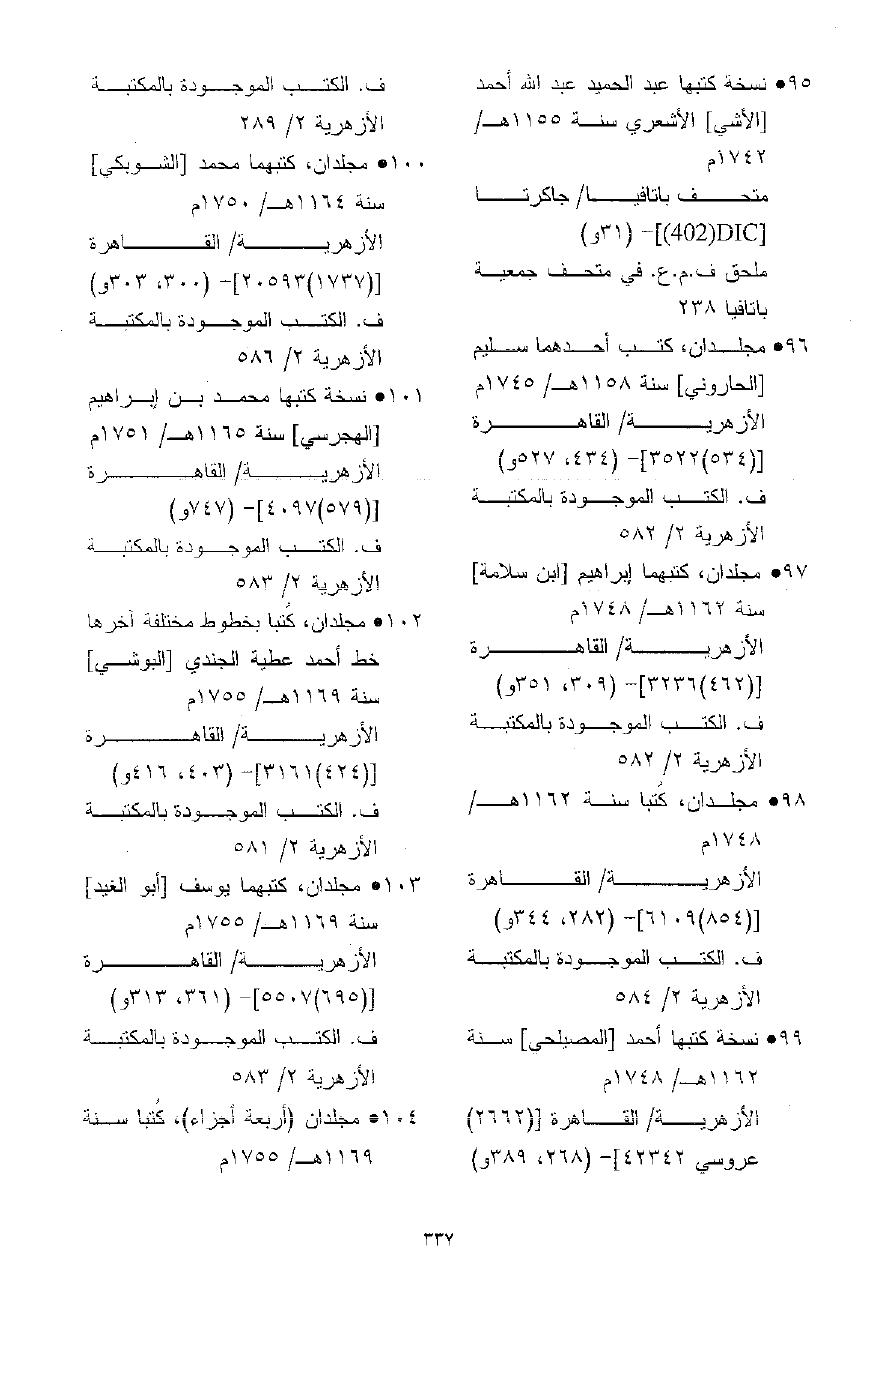 ٩٥• نسخة كتبها عبد الحميد عبد الله أحمد
[الأشي] الأشعري سنة ١١٥٥هـ/
١٧٤٢م
متحف باتافيا/ جاكرتا
[402)DIC)]- (٣١و)
ملحق ف.م.ع. في متحف جمعية
باتافيا ٢٣٨
٩٦• مجلدان، كتب أحدهما سليم
[الحاروني] سنة ١١٥٨هـ/ ١٧٤٥م
الأزهرية/ القاهرة
[(٥٣٤)٣٥٢٢]- (٤٣٤، ٥٢٧و)
ف. الكتب الموجودة بالمكتبة
الأزهرية ٢/ ٥٨٢
٩٧• مجلدان، كتبهما إبراهيم [ابن سلامة]
سنة ١١٦٢هـ/ ١٧٤٨م
الأزهرية/ القاهرة
[(٤٦٢)٣٢٣٦]- (٣٠٩، ٣٥١و)
ف. الكتب الموجودة بالمكتبة
الأزهرية ٢/ ٥٨٢
٩٨• مجلدان، كُتبا سنة ١١٦٢هـ/
١٧٤٨م
الأزهرية/ القاهرة
[(٨٥٤)٦١٠٩]- (٢٨٢، ٣٤٤و)
ف. الكتب الموجودة بالمكتبة
الأزهرية ٢/ ٥٨٤
٩٩• نسخة كتبها أحمد [المصيلحي] سنة
١١٦٢هـ/ ١٧٤٨م
الأزهرية/ القاهرة [(٢٦٦٢)
عروسي ٤٢٣٤٢]- (٢٦٨، ٣٨٩و)
ف. الكتب الموجودة بالمكتبة
الأزهرية ٢/ ٢٨٩
١٠٠• مجلدان، كتبهما محمد [الشوبكي]
سنة ١١٦٤هـ/ ١٧٥٠م
الأزهرية/ القاهرة
[(١٧٣٧)٢٠٥٩٣]- (٣٠٠، ٣٠٣و)
ف. الكتب الموجودة بالمكتبة
الأزهرية ٢/ ٥٨٦
١٠١• نسخة كتبها محمد بن إبراهيم
[الهجرسي] سنة ١١٦٥هـ/ ١٧٥١م
الأزهرية/ القاهرة
[(٥٧٩)٤٠٩٧]- (٧٤٧و)
ف. الكتب الموجودة بالمكتبة
الأزهرية ٢/ ٥٨٣
١٠٢• مجلدان، كُتبا بخطوط مختلفة آخرها
خط أحمد عطية الجندي [البوشي]
سنة ١١٦٩هـ/ ١٧٥٥م
الأزهرية/ القاهرة
[(٤٢٤)٣١٦١]- (٤٠٣، ٤١٦و)
ف. الكتب الموجودة بالمكتبة
الأزهرية ٢/ ٥٨١
١٠٣• مجلدان، كتبهما يوسف [أبو الغيد]
سنة ١١٦٩هـ/ ١٧٥٥م
الأزهرية/ القاهرة
[(٦٩٥)٥٥٠٧]- (٣٦١، ٣١٣و)
ف. الكتب الموجودة بالمكتبة
الأزهرية ٢/ ٥٨٣
١٠٤• مجلدان (أربعة أجزاء)، كُتبا سنة
١١٦٩هـ/ ١٧٥٥م
٣٣٧